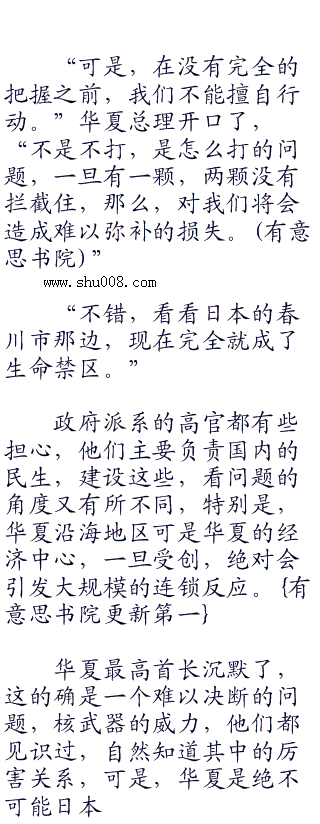 “可是，在没有完全的
把握之前，我们不能擅自行
动。”华夏总理开口了，
“不是不打，是怎么打的问
题，一旦有一颗，两颗没有
拦截住，那么，对我们将会
造成难以弥补的损失。(有意
思书院)”
www.shu008.com
“不错，看看日本的春
川市那边，现在完全就成了
生命禁区。”
政府派系的高官都有些
担心，他们主要负责国内的
民生，建设这些，看问题的
角度又有所不同，特别是，
华夏沿海地区可是华夏的经
济中心，一旦受创，绝对会
引发大规模的连锁反应。{有
意思书院更新第一}
华夏最高首长沉默了，
这的确是一个难以决断的问
题，核武器的威力，他们都
见识过，自然知道其中的厉
害关系，可是，华夏是绝不
可能日本